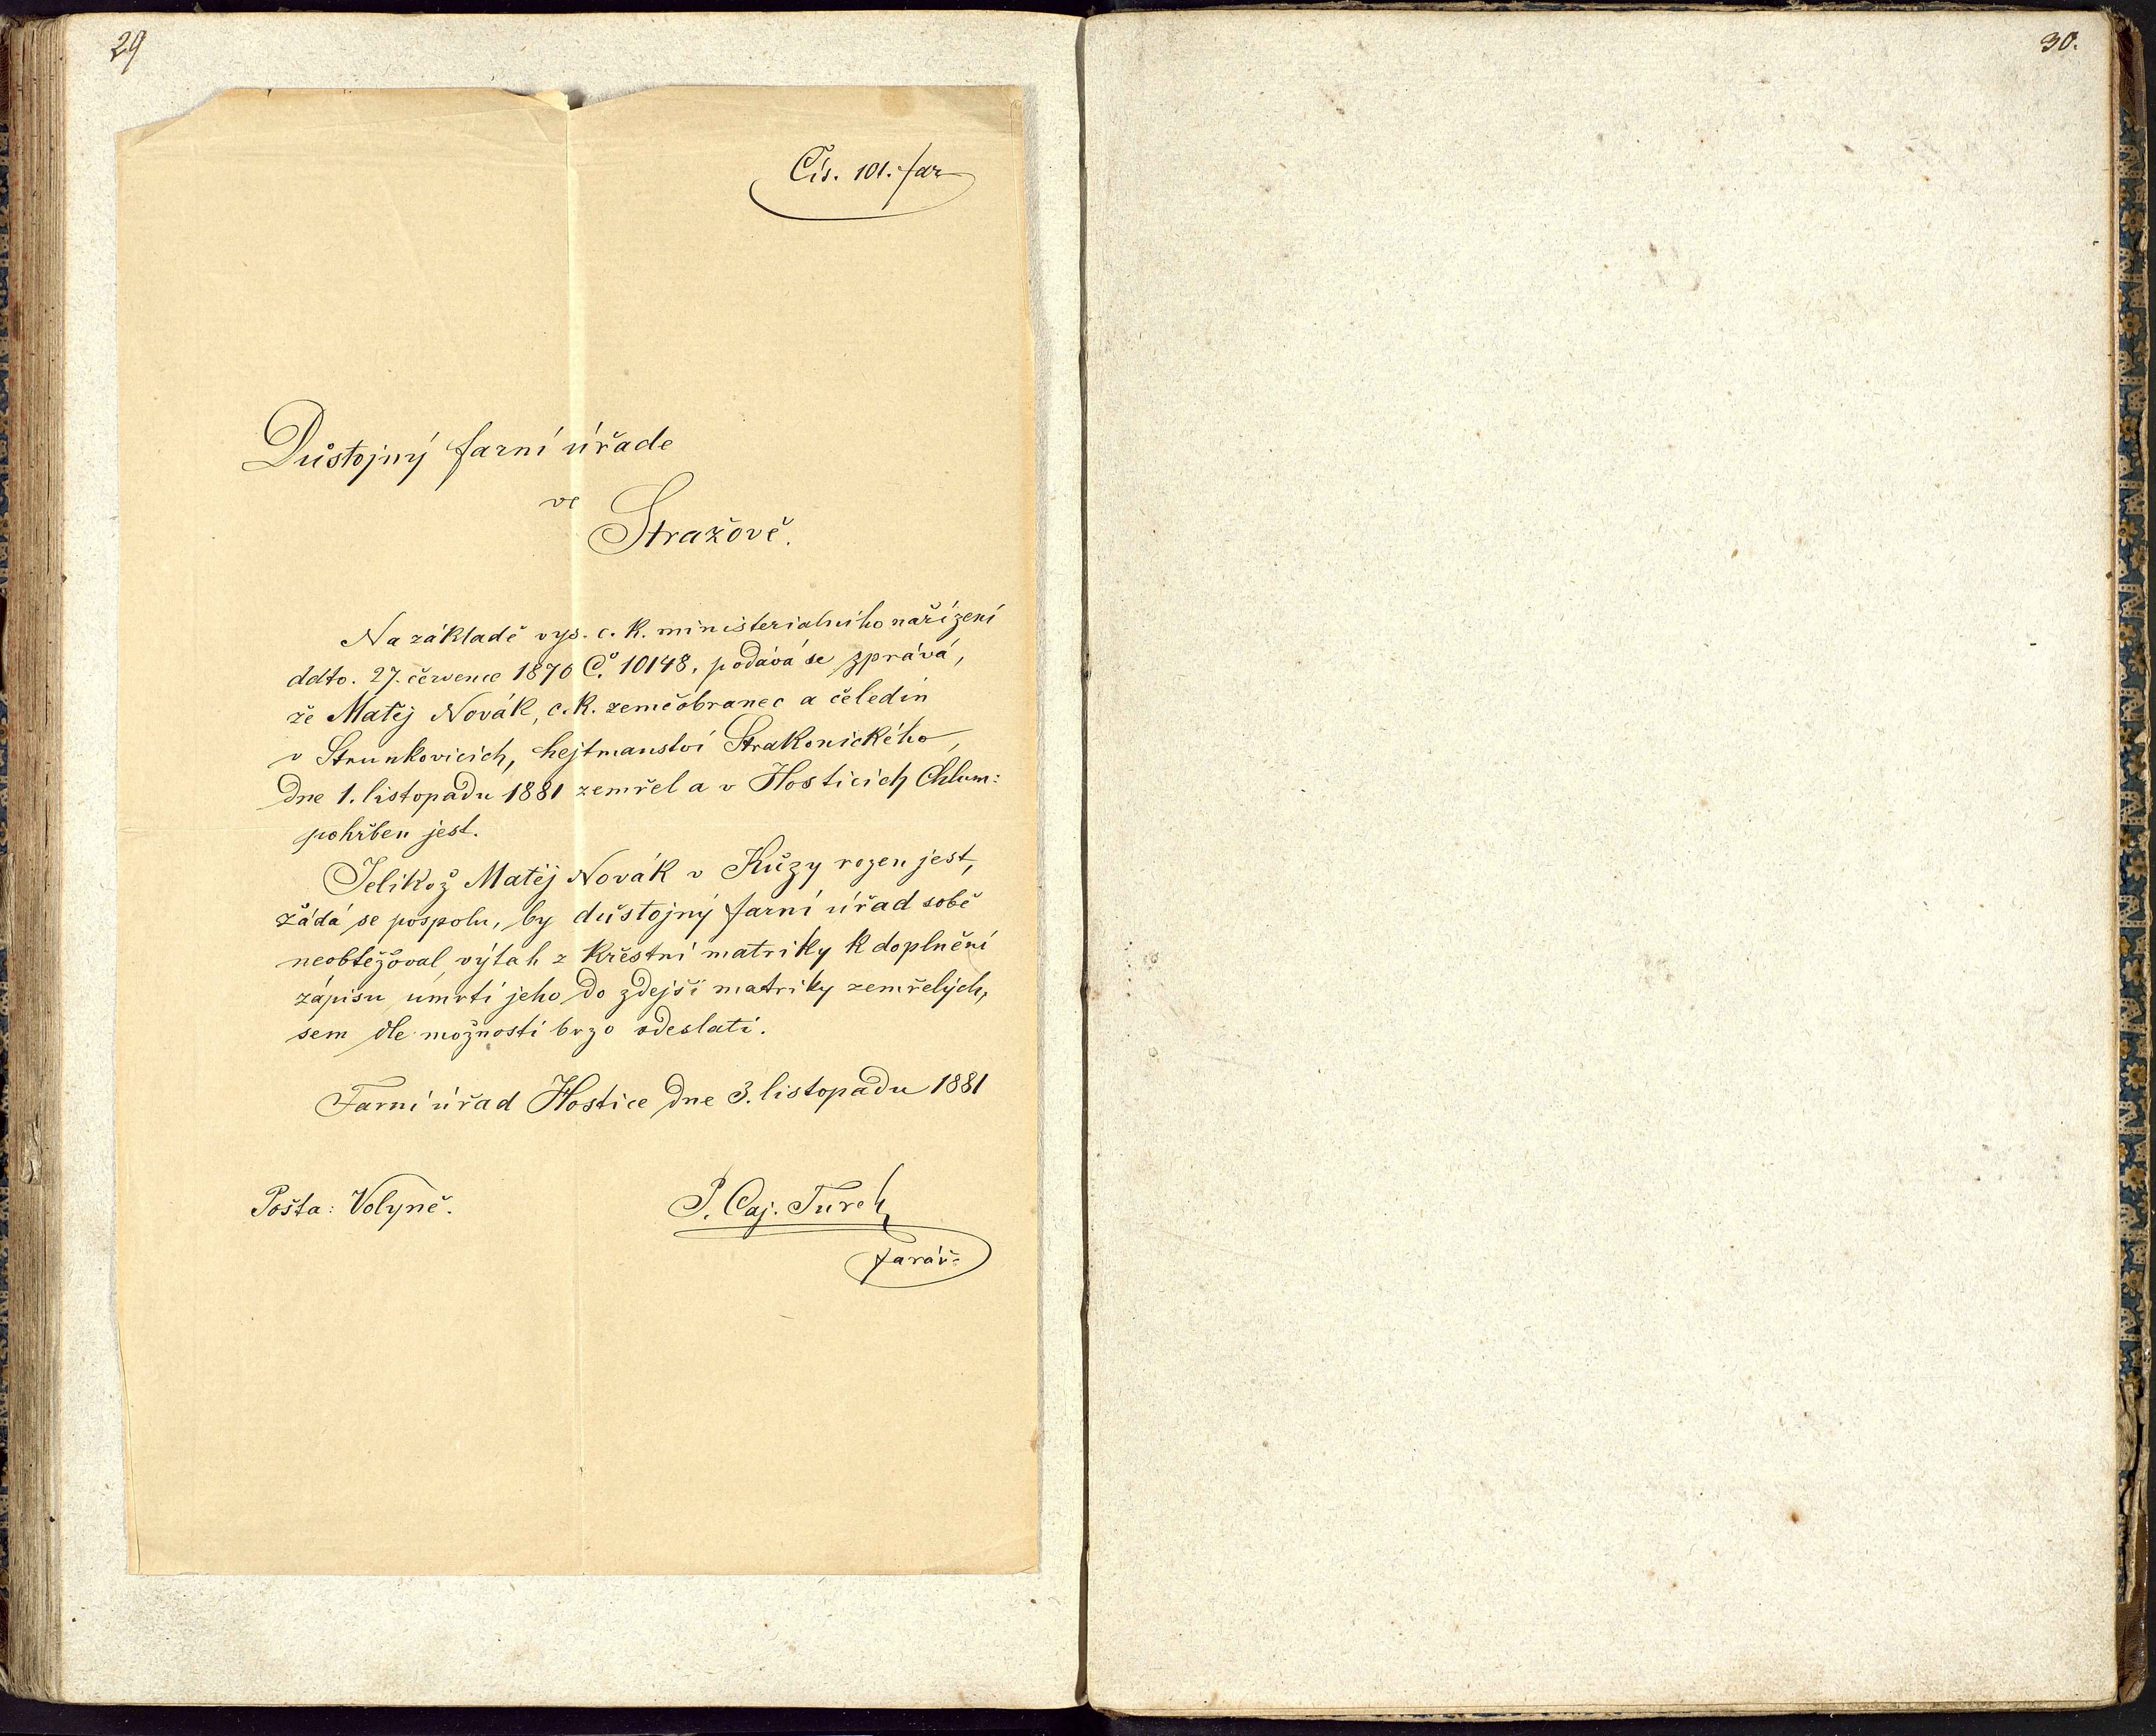 29
30.
Čís. 101. far
Důstojný farní úřade
ve
Stražově.
Na základě vys. c. k. ministerialního nařízení
ddto. 27. července 1870 Č. 10148, podává se zpráva,
že Matěj Novák, c. k. zeměobranec a čeledín
v Strunkovicích, hejtmanství Strakonického,
dne 1. listopadu 1881 zemřel a v Hosticích Chlum:
pohřben jest.
Jelikož Matěj Novák v Kůzy rozen jest,
žádá se pospolu, by důstojný farní úřad sobě
neobtěžoval, výtah z křestní matriky k doplnění
zápisu úmrtí jeho do zdejší matriky zemřelých,
sem dle možnosti brzo odeslati.
Farní úřad Hostice dne 3. listopadu 1881
Pošta: Volyně.
P. Caj. Turek
farář